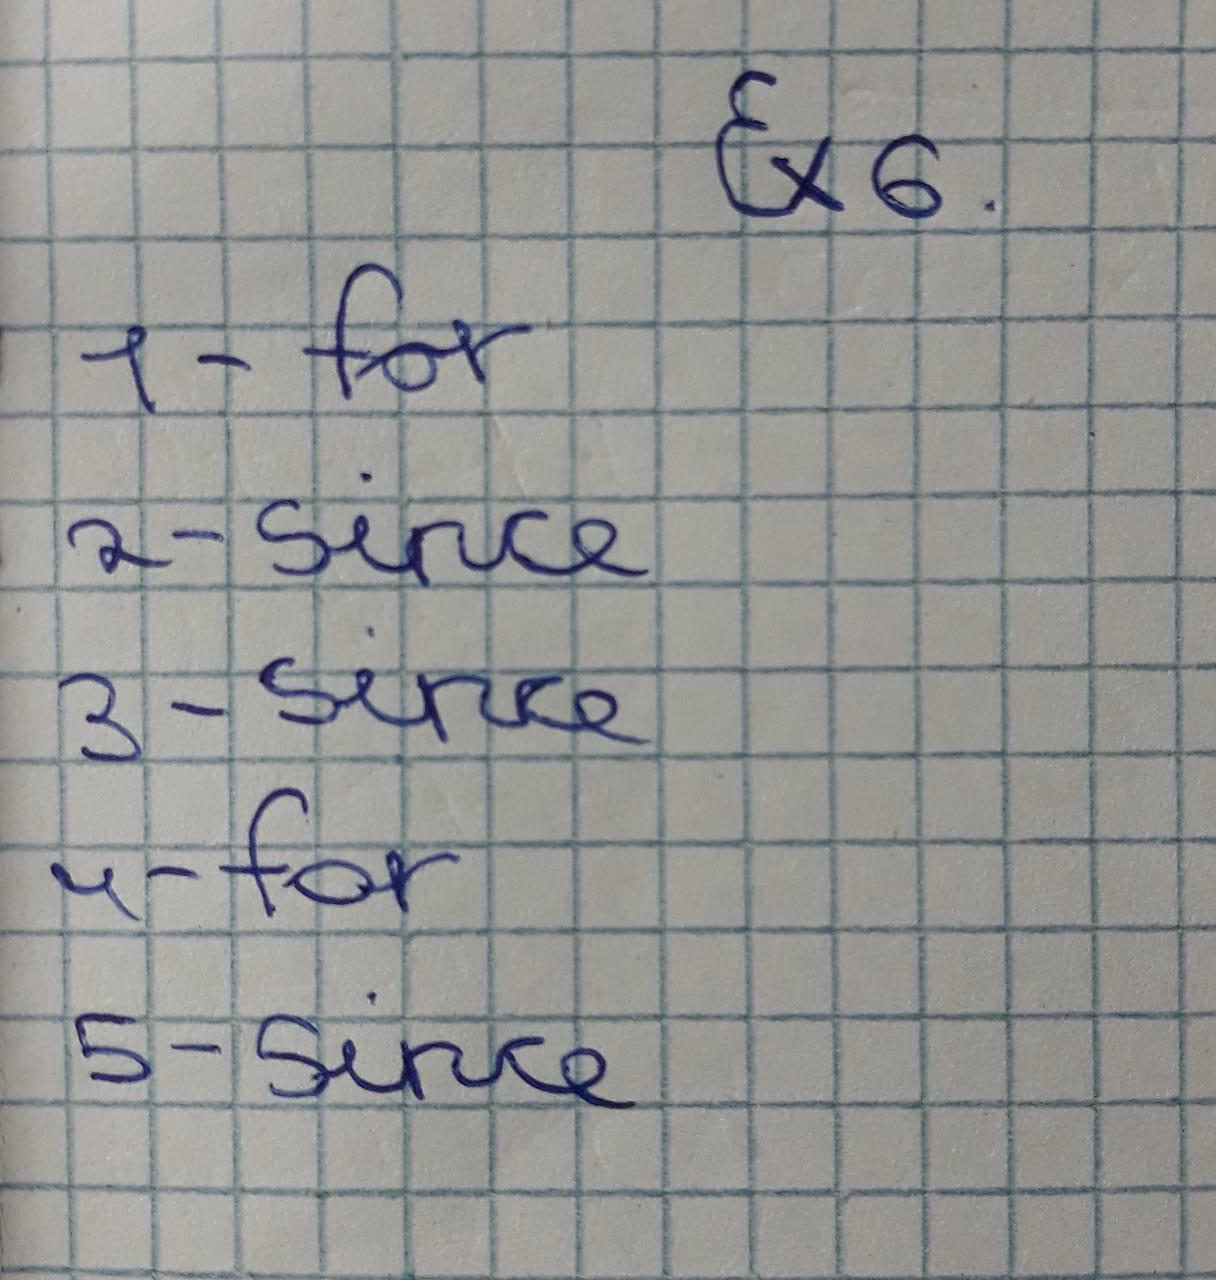 Ex 6.
1 - for
2 - since
3 - since
4 - for
5 - since